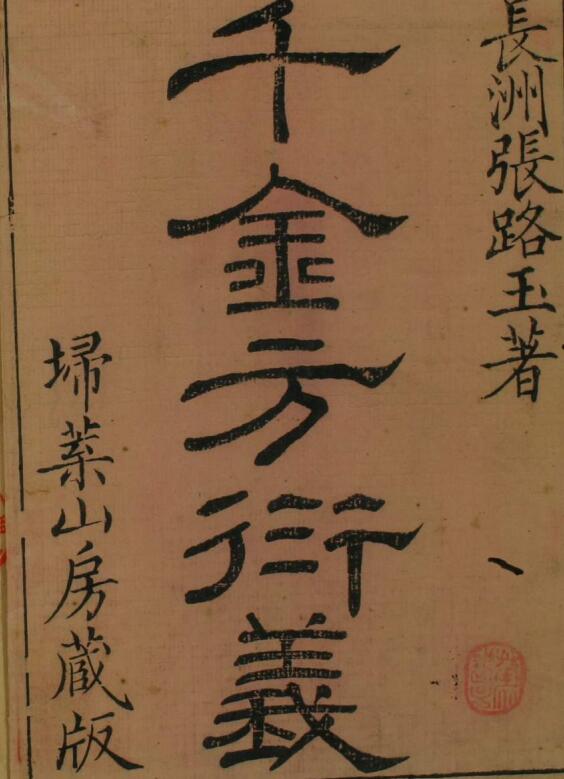 長洲張路玉著
千金方衍義
埽葉山房藏版